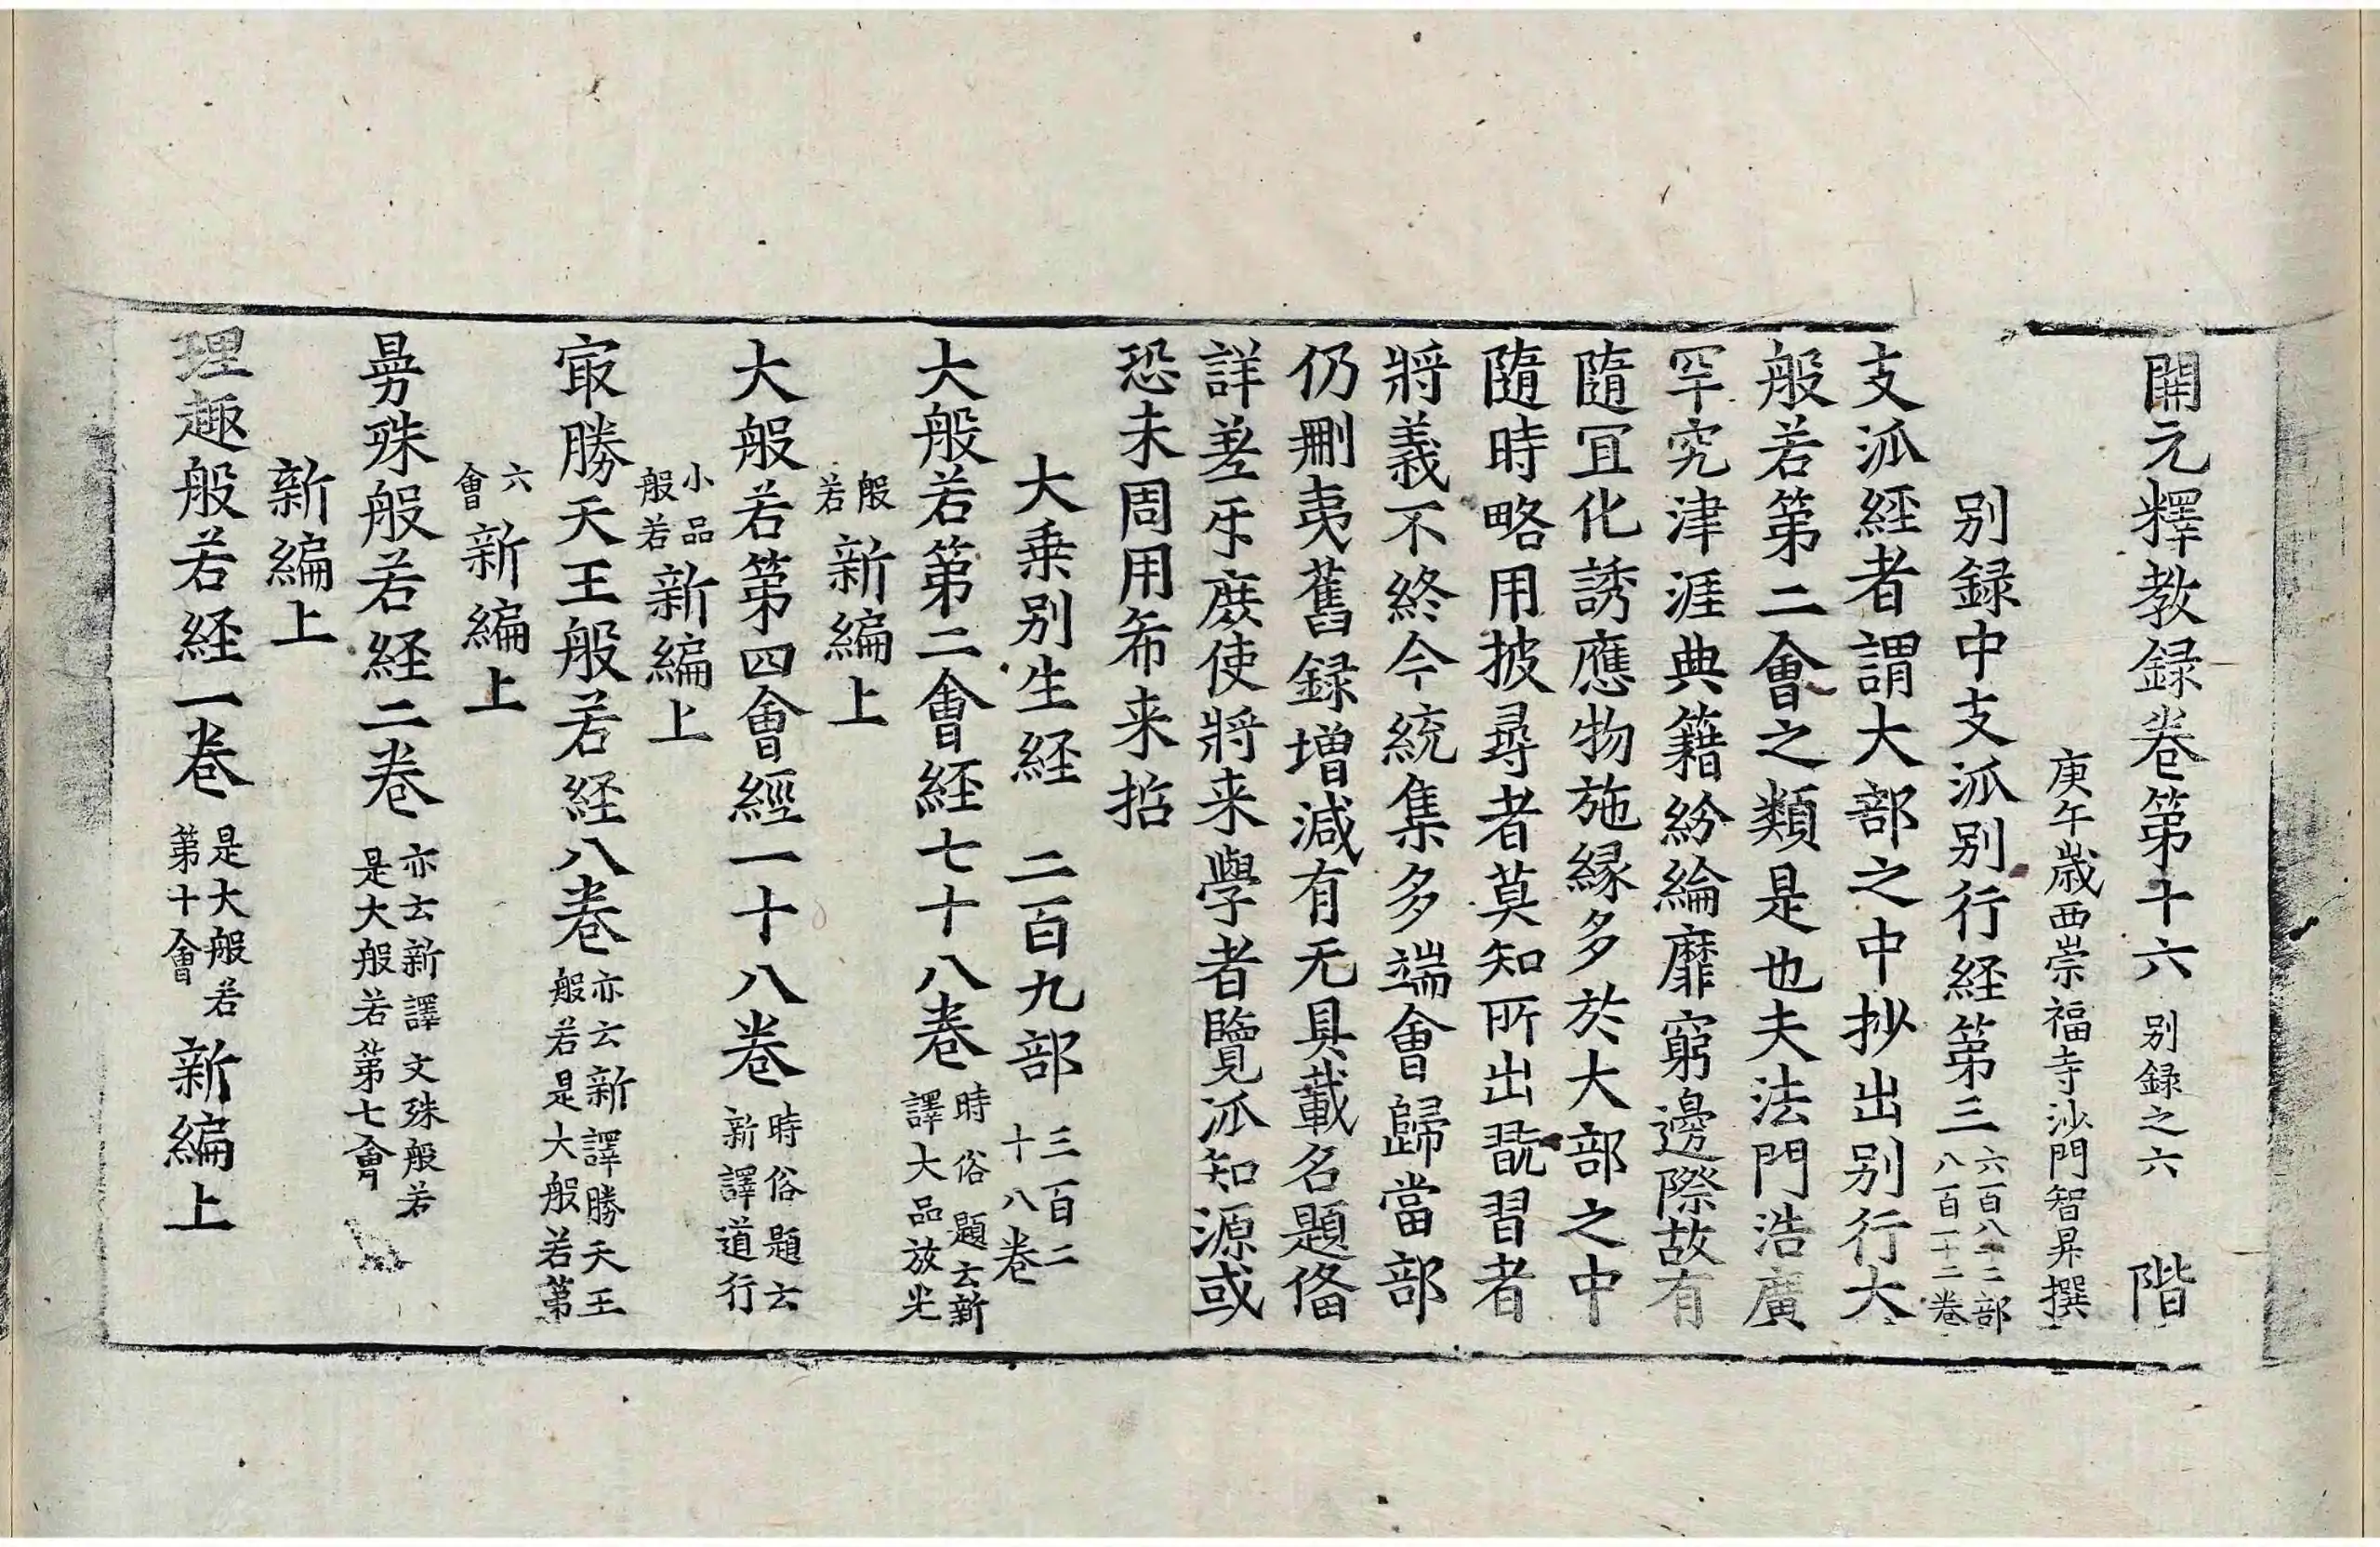 開元釋教録卷第十六 别録之六 階
庚午歳西崇福寺沙門智昇撰
别録中支派别行経第三 六百八十二部 八百一十二卷
支派経者謂大部之中抄出别行大
般若第二會之類是也夫法門浩廣
罕究津涯典籍紛綸靡窮邊際故有
隨冝化誘應物施縁多於大部之中
隨時略用披尋者莫知所出翫習者
將義不終今統集多端會歸當部
仍刪夷舊録增減有无具載名題俻
詳差㸦庻使將来學者覽派知源或
恐未周用希来括
大乗别生経 二百九部 三百二 十八卷
大般若第二會経七十八卷 時俗題云新 譯大品放光
般 若 新編上
大般若第四會經一十八卷 時俗題云 新譯道行
小品 般若 新編上
㝡勝天王般若経八卷 亦云新譯勝天王 般若是大般若第
六 會 新編上
曼殊般若経二卷 亦云新譯文殊般若 是大般若第七會
新編上
理趣般若経一卷 是大般若 第十會 新編上